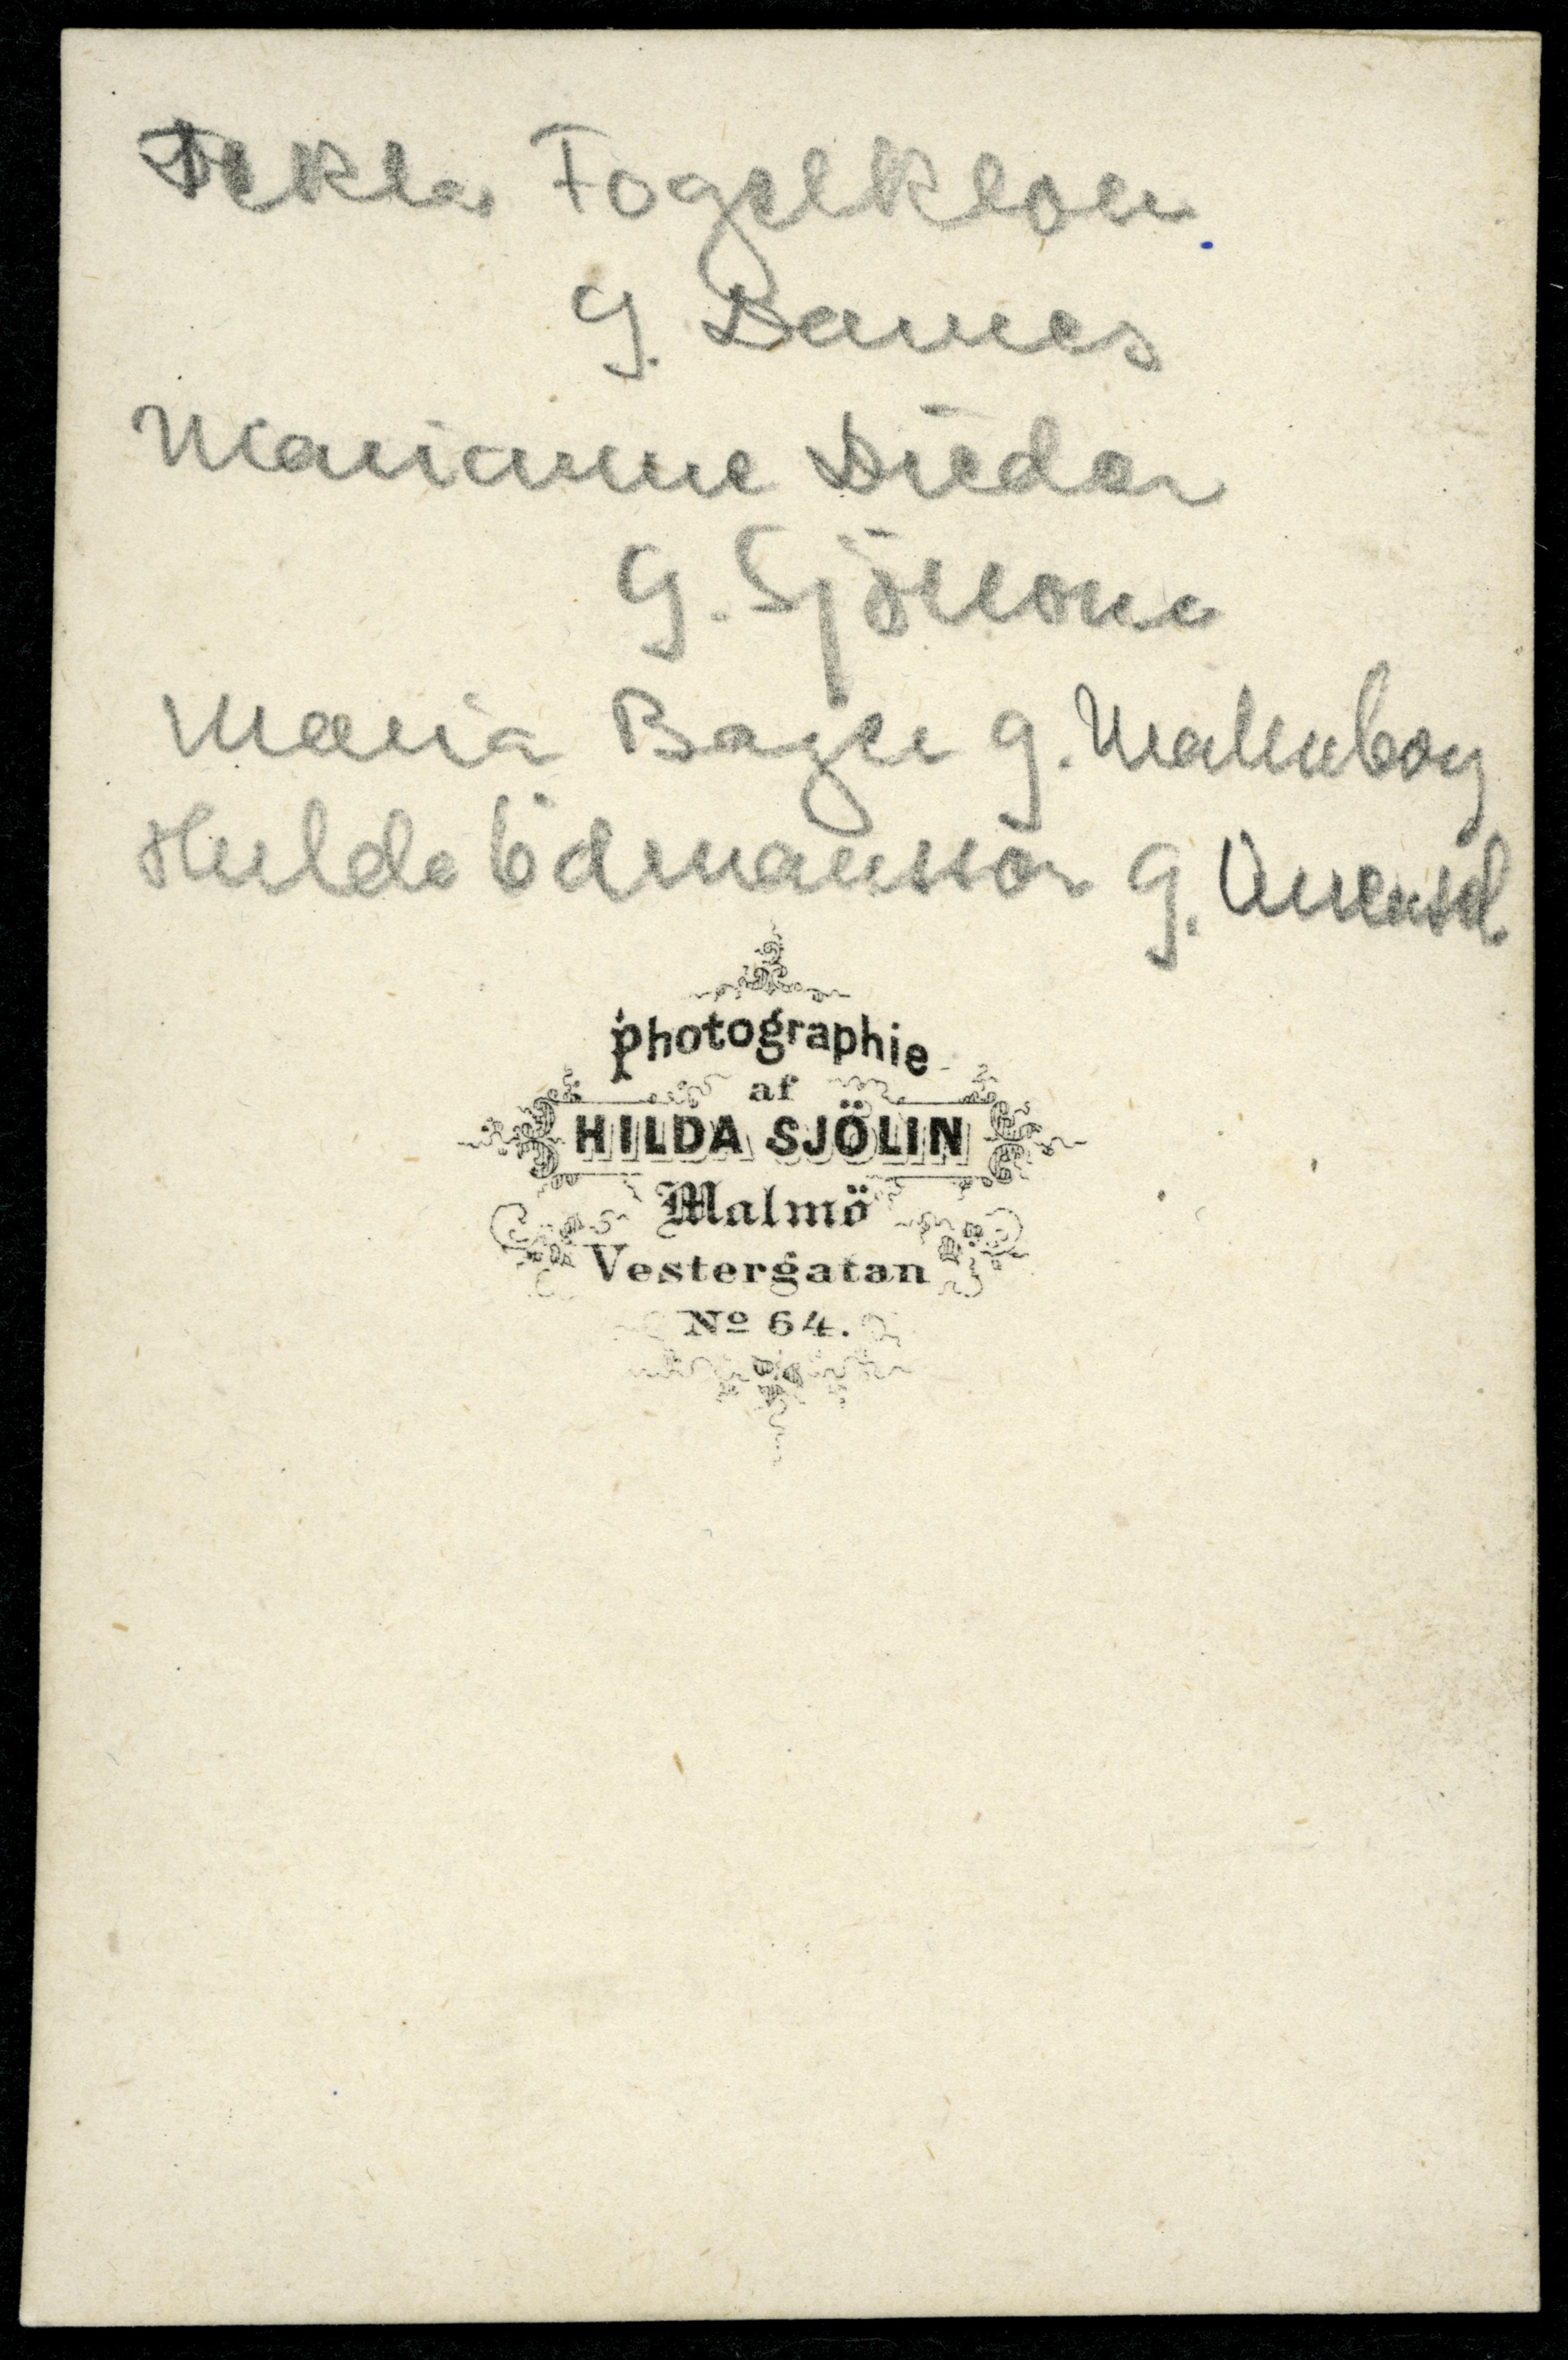 Tekla Fogelklou
g. Dames
Marianne Diedar
g. Sjöcrona
Maria Bager g. Malmborg
Hulda Ödmansson g.
Photographie
af
HILDA SJÖLIN
Malmö
Vestergatan
No 64.